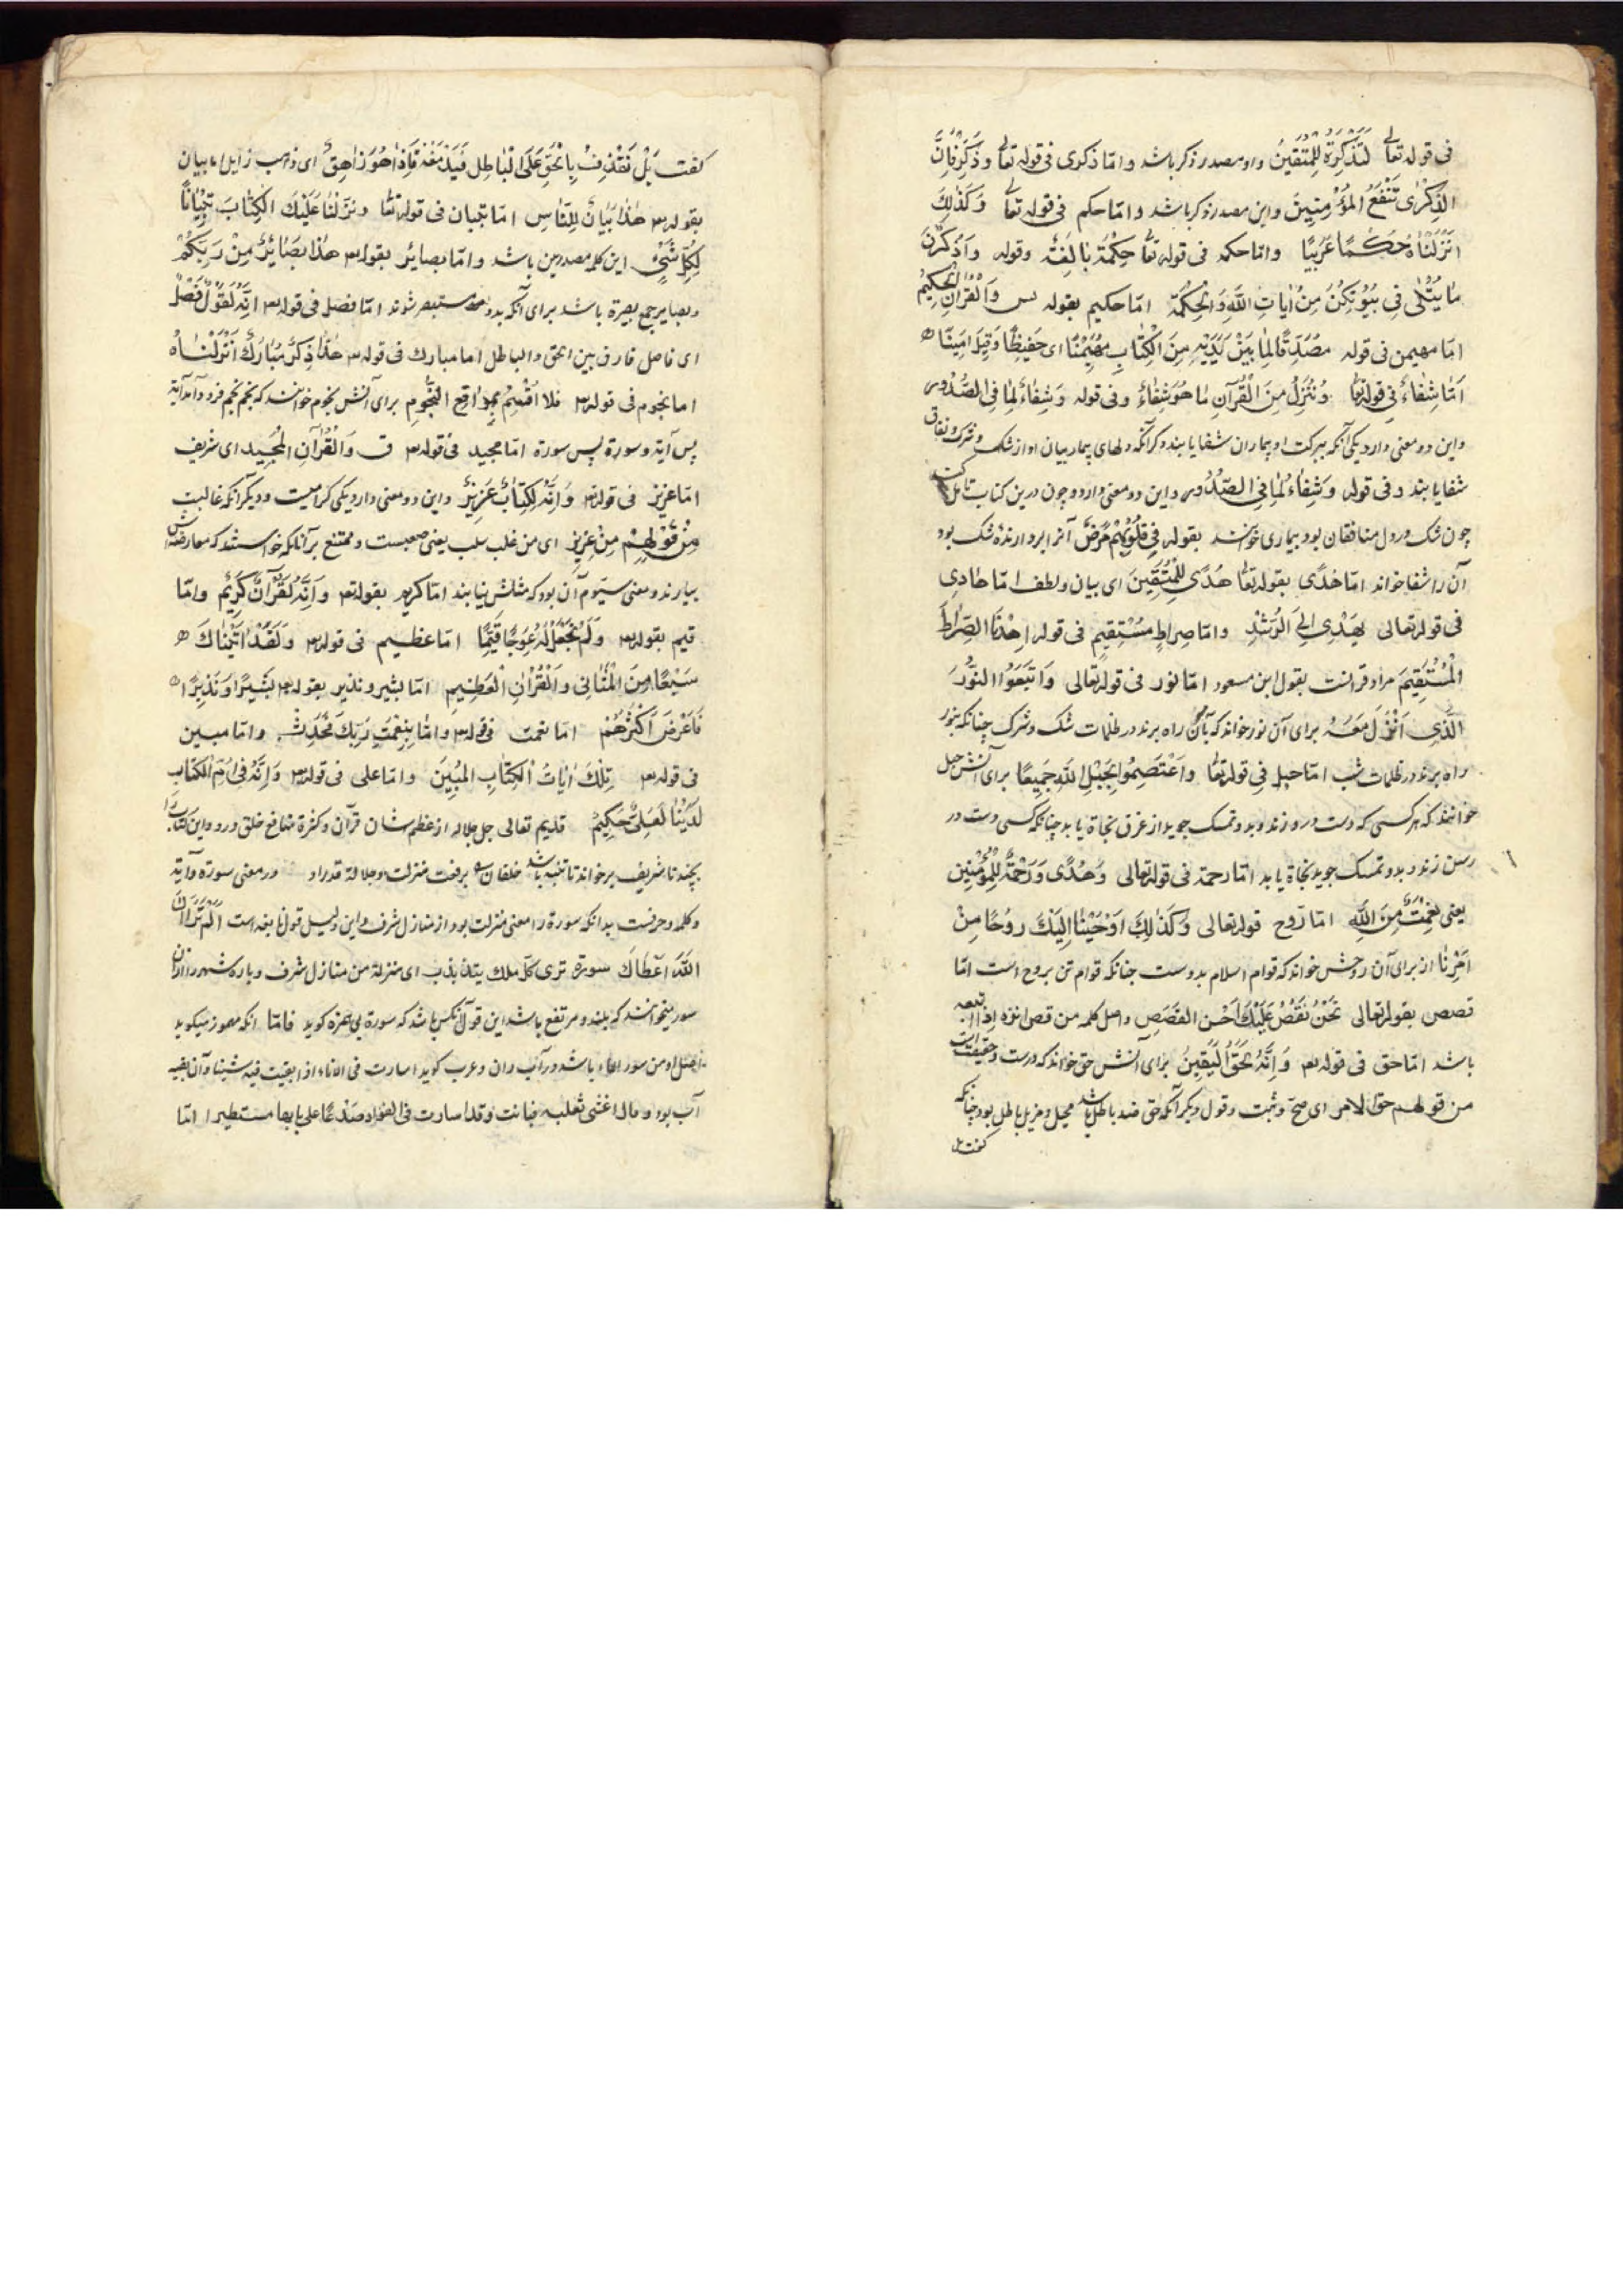 فی قوله تعالی لَتَذْكِرَةٌ لِلْمُتَّقِينَ واو مصدر ذکر باشد و امّا ذکری فی قوله تعالی وَذَكِّرْ فَإِنَّ
الذِّكْرٰى تَنْفَعُ الْمُؤْمِنِينَ و این مصدر ذکر باشد و امّا حکم فی قوله تعالی وَكَذٰلِكَ
اَنْزَلْنَاهُ حُكْمًا عَرَبِيًّا و امّا حکمه فی قوله تعا حِكْمَةٌ بٰالِغَةٌ وقوله وَاذْكُرْنَ
مٰا يُتْلٰى فِي بُيُوتِكُنَّ مِنْ اٰيَاتِ اللّٰهِ وَالْحِكْمَةِ امّا حکیم بقوله یس وَالْقُرْاٰنِ الْحَكِيمِ
امّا مهیمن فی قوله مُصَدِّقًا لِمٰا بَيْنَ يَدَيْهِ مِنَ الْكِتٰابِ مُهَيْمِنًا ای حَفِيظًا وَقِيلَ اَمِينًا
اَمّٰا شِفٰاءٌ فی قوله تعا وَنُنَزِّلُ مِنَ الْقُرْآنِ مٰا هُوَ شِفٰاءٌ وفی قوله وَشِفٰاءٌ لِمٰا فِی الصُّدُورِ
و این دو معنی دارد یکی آنکه ببرکت او بیماران شفا یابند و دکر آنکه دلهای بیمار ببیان او از شک و شرک و نفاق
شفا یابند و فی قوله وَشِفٰاءٌ لِمٰا فِی الصُّدُورِ و این دو معنی دارد و چون درین کتاب تامل کنت
چون شک در دل منافقان بود بیماری خوانند بقوله فِي قُلُوبِهِمْ مَرَضٌ آنرا بردارنده شک بود
آن را شفا خواند امّا هُدًی بقوله تعا هُدًى لِلْمُتَّقِينَ ای بیان ولطف امّا هٰادِی
فی قوله تعالی يَهْدِي اِلَى الرُّشْدِ وامّا صِرٰاطٍ مُسْتَقِيمٍ فی قوله اِهْدِنَا الصِّرٰاطَ
الْمُسْتَقِيمَ مراد قرانست بقول ابن مسعود امّا نور فی قوله تعالی وَاتَّبَعُوا النُّورَ
الَّذِي اُنْزِلَ مَعَهُ برای آن نور خواند که بآن راه برند در ظلمات شک و شرک چنانکه بنور
راه برند در ظلمات شب امّا حبل فی قوله تعا وَاعْتَصِمُوا بِحَبْلِ اللّٰهِ جَمِيعًا برای آنش حبل
خوانند که هر کسی که دست درو زند و بدو تمسک جوید از غرق نجاة یابد چنانکه کسی دست در
رسن زند و بدو تمسک جوید نجاة یابد امّا رحمة فی قوله تعالی وَهُدًى وَرَحْمَةٌ لِلْمُؤْمِنِينَ
یعنی نِعْمَتٌ مِنَ اللّٰهِ امّا رُوح قوله تعالی وَكَذٰلِكَ اَوْحَيْنٰا اِلَيْكَ رُوحًا مِنْ
اَمْرِنٰا از برای آن روحش خواند که قوام اسلام بدوست چنانکه قوام تن بروح است امّا
قصص بقوله تعالی نَحْنُ نَقُصُّ عَلَيْكَ اَحْسَنَ الْقَصَصِ واصل کلمه من قص اثره اذا اتبعه
باشد امّا حق فی قوله تعه وَاِنَّهُ لَحَقُّ الْيَقِينِ برای آنش حق خواند که درست و حقیقت است
من قولهم حق الامر ای صحّ وثبت وقول دیکر آنکه حق ضد باطل باشد محیل و مزیل باطل بود چنانکه
کفت
کفت بَلْ نَقْذِفُ بِالْحَقِّ عَلَى الْبٰاطِلِ فَيَدْمَغُهُ فَاِذٰا هُوَ زٰاهِقٌ ای ذاهب زایل اما بیان
بقوله تعه هٰذٰا بَيٰانٌ لِلنّٰاسِ امّا تبیان فی قوله تعا وَنَزَّلْنٰا عَلَيْكَ الْكِتٰابَ تِبْيٰانًا
لِكُلِّ شَيْءٍ این کلمه مصدر بین باشد و امّا بصایر بقوله تعه هٰذٰا بَصٰائِرُ مِنْ رَبِّكُمْ
و بصایر جمع بصیرة باشد برای آنکه بدو مستبصر شوند امّا فصل فی قوله تعه اِنَّهُ لَقَوْلٌ فَصْلٌ
ای فاصل فارق بین الحق والباطل اما مبارک فی قوله تعه هٰذٰا ذِكْرٌ مُبٰارَكٌ اَنْزَلْنٰاهُ
اما نجوم فی قوله تعه فَلٰا اُقْسِمُ بِمَوٰاقِعِ النُّجُومِ برای آنش نجوم خوانند که نجم نجم فرود آمد آیة
پس آیة و سورة پس سورة امّا مجید فی قوله تعه ق وَالْقُرْآنِ الْمَجِيدِ ای شریف
امّا عزیز فی قوله تعه وَاِنَّهُ لَكِتٰابٌ عَزِيزٌ و این دو معنی دارد یکی کرامیست و دیکر آنکه غالبست
مِنْ قَوْلِهِمْ مَنْ عَزَّ بَزَّ ای من غلب سلب یعنی صعبست و ممتنع بر آنانکه خواستند که معارضه اش
بیارند و معنی سیّوم آن بود که مثلش نیابند امّا کریم بقوله تعه وَاِنَّهُ لَقُرْآنٌ كَرِيمٌ وامّا
قیم بقوله تعه وَلَمْ يَجْعَلْ لَهُ عِوَجًا قَيِّمًا امّا عظیم فی قوله تعه وَلَقَدْ اٰتَيْنٰاكَ
سَبْعًا مِنَ الْمَثٰانِي وَالْقُرْاٰنِ الْعَظِيمِ امّا بشیر و نذیر بقوله تعه بَشِيرًا وَنَذِيرًا
فَاَعْرَضَ اَكْثَرُهُمْ امّا نعمت فی قوله تعه وَامّٰا بِنِعْمَتِ رَبِّكَ فَحَدِّثْ وامّا مبین
فی قوله تعه تِلْكَ اٰيٰاتُ الْكِتٰابِ الْمُبِينِ وامّا علی فی قوله تعه وَاِنَّهُ فِي اُمِّ الْكِتٰابِ
لَدَيْنٰا لَعَلِيٌّ حَكِيمٌ قدیم تعالی جل جلاله از عظم شان قرآن و کثرة منافع خلق درو این کتاب را
بچند نام شریف برخواند تا تنبیه باشد خلقان را برفعت منزلت و جلالة قدر او در معنی سورة و آیة
و کلمه و حرفست بدانکه سورة را معنی منزلت بود از منازل شرف و این دلیل قول نابغه است اَلَمْ تَرَ اَنَّ
اللّٰهَ اَعْطٰاكَ سورة تری کلّ ملک یتذبذب ای منزلة من منازل شرف و باره شهر را از آن
سور میخوانند که بلند و مرتفع باشد این قول آنکس باشد که سورة بی همزه کوید فامّا آنکه مهموز میکوید
اصل او من سور الماء باشد در آب دان و عرب کوید اسارت فی الاناء اذا بقیت فیه شیئا و آن بقیه
آب بود و قال اعشی ثعلبه فبانت وقد اسارت فی الفؤاد صدعًا علی نایها مستطیرا امّا